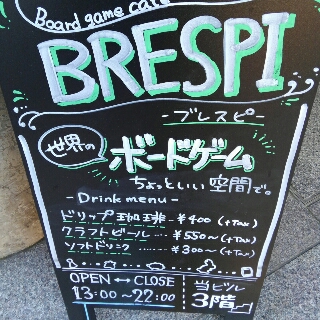 Board game cafe
BRESPI
-ブレスピ-
世界の
ボードゲーム
ちょっといい空間で。
-Drink menu-
ドリップ珈琲-¥400(+Tax)
クラフトビール-¥550~(+Tax)
ソフトドリンク-¥300~(+Tax)
OPEN↔CLOSE
13:00~22:00
当ビル
3階